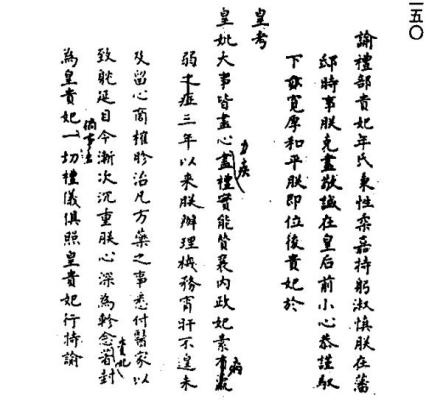 一五〇
諭禮部貴妃年氏秉性柔嘉持躬淑慎朕在藩
邸時事朕克盡敬誠在皇后前小心恭謹馭
下亦寬厚和平朕即位後貴妃於
皇考
皇妣大事皆盡心力疾盡禮實能贊襄內政妃素病
弱三年以來朕辦理機務宵旰不遑未
及留心商榷胗治凡方藥之事悉付醫家以
致躭延目今漸次沉重朕心深為軫念貴妃著封
為皇貴妃倘事出一切禮儀俱照皇貴妃行特諭